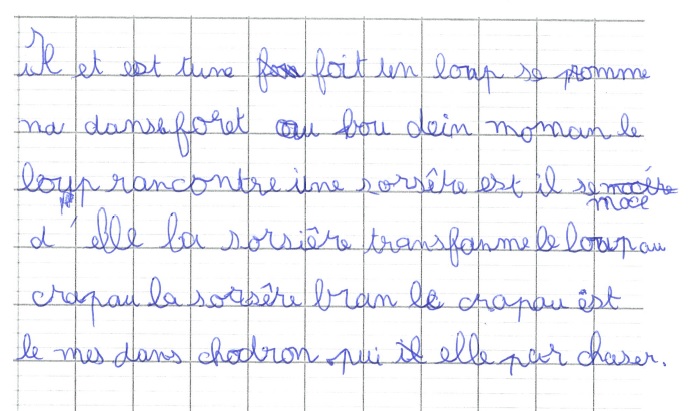 Il et est tune foit un loup se promme
na dans foret au bou dein moman le
loup rancontre une sorsête est il se moce
d'elle la sorsière transfanme le loup au
crapau la sorsêre bran le crapau est
le mes dans chodron. pui elle par chaser.